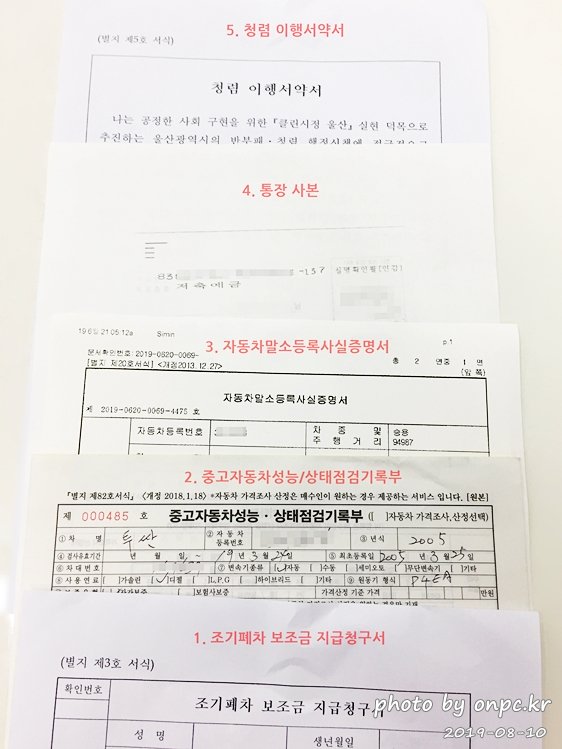 5. 청렴 이행서약서
(별지 제5호 서식)
청렴 이행서약서
나는 공정한 사회 구현을 위한 『클린시정 울산』 실현 덕목으로
추진하는 울산광역시의 반부패·청렴 행정시책에 적극적으로
4. 통장 사본
-137 실명확인필(인감)
저축예금
19 6월 21 05:12a Simin p.1
3. 자동차말소등록사실증명서
문서확인번호: 2019-0620-0069-
총 2 면중 1 면
[별지 제20호서식] <개정2013.12.27>
(앞 쪽)
자동차말소등록사실증명서
제 2019-0620-0069-4475 호
자동차등록번호
차종 및 주행거리
승용 94987
2. 중고자동차성능/상태점검기록부
『별지 제82호서식』 〈개정 2018.1.18〉 *자동차 가격조사 산정은 매수인이 원하는 경우 제공하는 서비스 입니다. [원본]
제 000485 호 중고자동차성능·상태점검기록부 ([ ]자동차 가격조사,산정선택)
① 차 명 투싼 ② 자동차등록번호 ③ 년식 2005
④ 검사유효기간 년 월 일 ~ 19년 3월 24일 ⑤ 최초등록일 2005년 3월 25일
⑥ 차대번호 ⑦ 변속기종류 [✓]자동 [ ]수동 [ ]세미오토 [ ]무단변속기 [ ]기타
⑧ 사용연료 [ ]가솔린 [✓]디젤 [ ]L.P.G [ ]하이브리드 [ ]기타 ⑨ 원동기 형식 D4EA
[ ]보험사보증 가격산정 기준 가격 만원
1. 조기폐차 보조금 지급청구서
(별지 제3호 서식)
확인번호
조기폐차 보조금 지급청구서
성 명 생년월일
photo by onpc.kr
2019-08-10